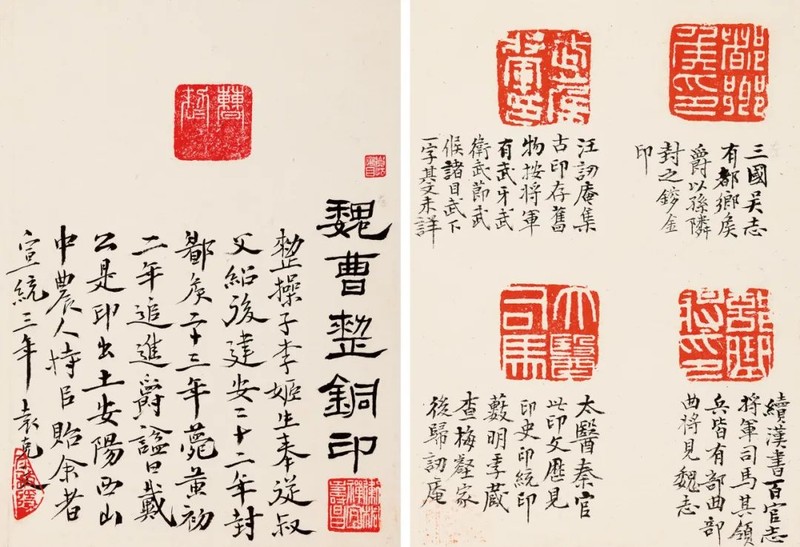 都鄉
侯印
三國吳志
有都鄉侯
爵以孫隣
封之鏒金
印
汪訒庵集
古印存舊
物按將軍
有武牙武
衛武節武
候諸目武下
一字其文未詳
續漢書百官志
將軍司馬其領
兵皆有部曲部
曲將見魏志
大醫
司馬
太醫秦官
此印文歷見
印史印統印
藪明季藏
查梅壑家
後歸訒庵
曹整
魏曹整銅印
整操子李姬生奉從叔
父紹後建安二十二年封
郿侯二十三年薨黃初
二年追進爵諡曰戴
公是印出土安陽西山
中農人持以貽余者
宣統三年 袁克文